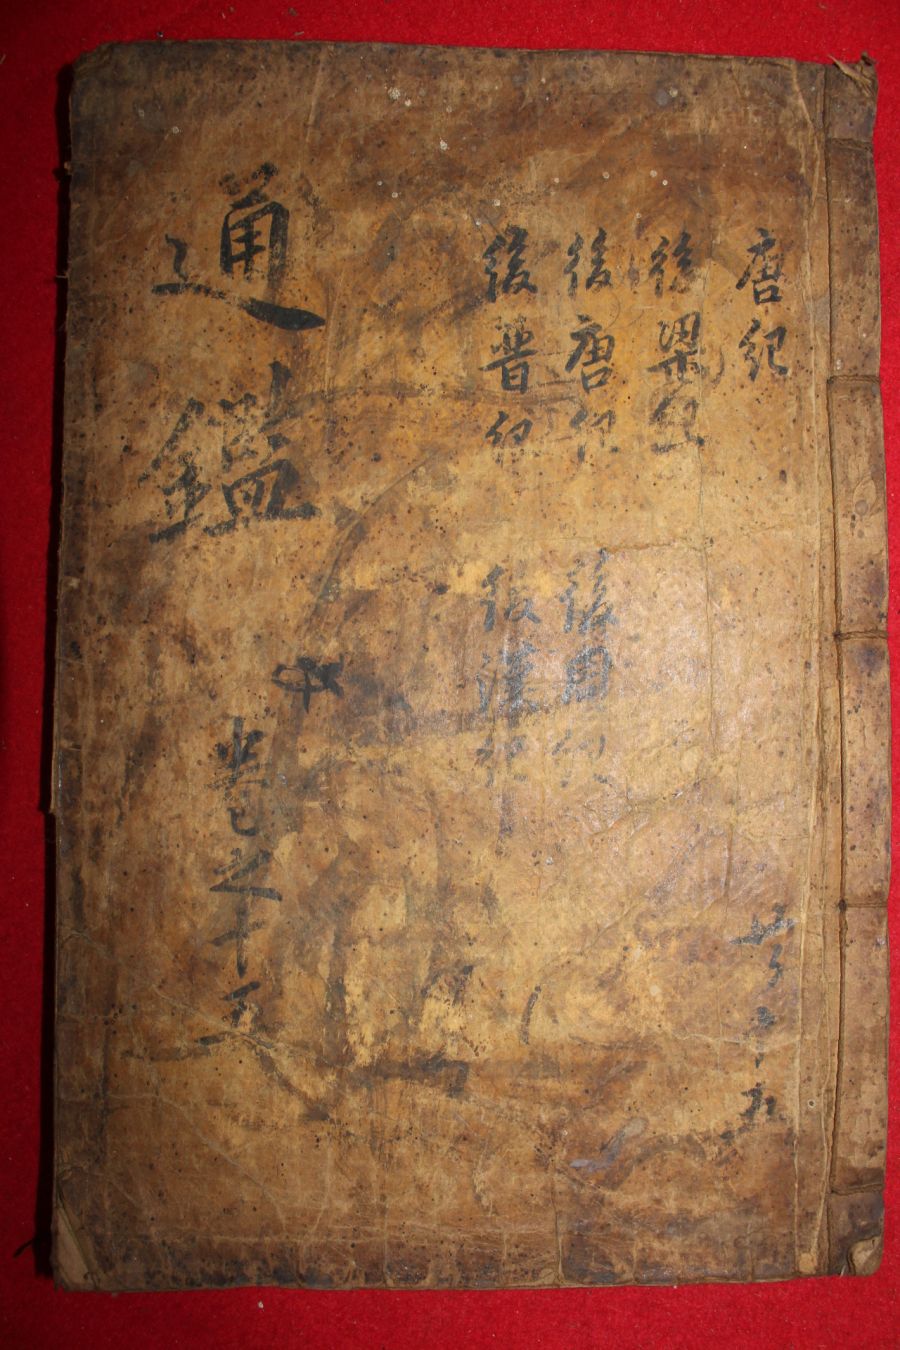 唐紀
後梁紀
後唐紀
後晉紀
後周紀
後漢紀
通鑑
卷之十五